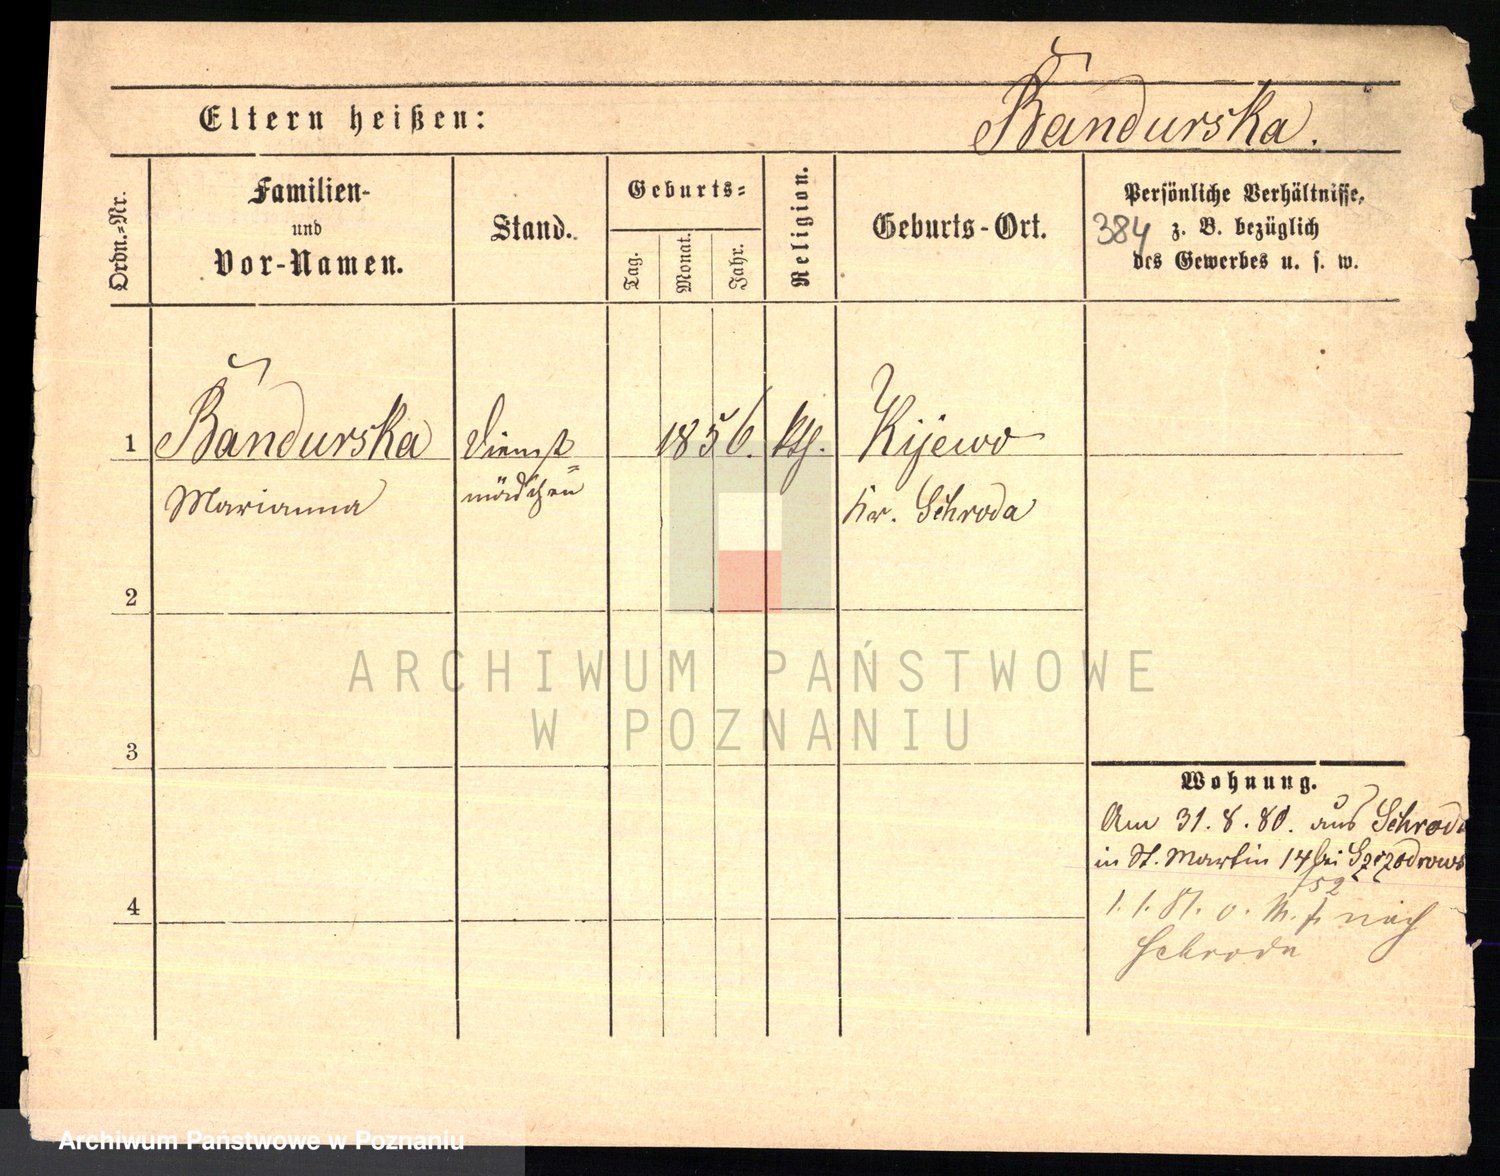 Bandurska.
Eltern heißen:
Ordn.-Nr.
Familien-
und
Vor-Namen.
Stand.
Geburts-
Tag.
Monat.
Jahr.
Religion.
Geburts-Ort.
Persönliche Verhältnisse,
z. B. bezüglich
des Gewerbes u. s. w.
384
1
Bandurska
Marianna
Dienst=
mädchen
1856.
kth.
Kijewo
Kr. Schroda
2
3
4
Wohnung.
Am 31.8.80. aus Schroda
in St. Martin 14 bei
52
1.1.81. nach
Schroda
ARCHIWUM PAŃSTWOWE
W POZNANIU
Archiwum Państwowe w Poznaniu